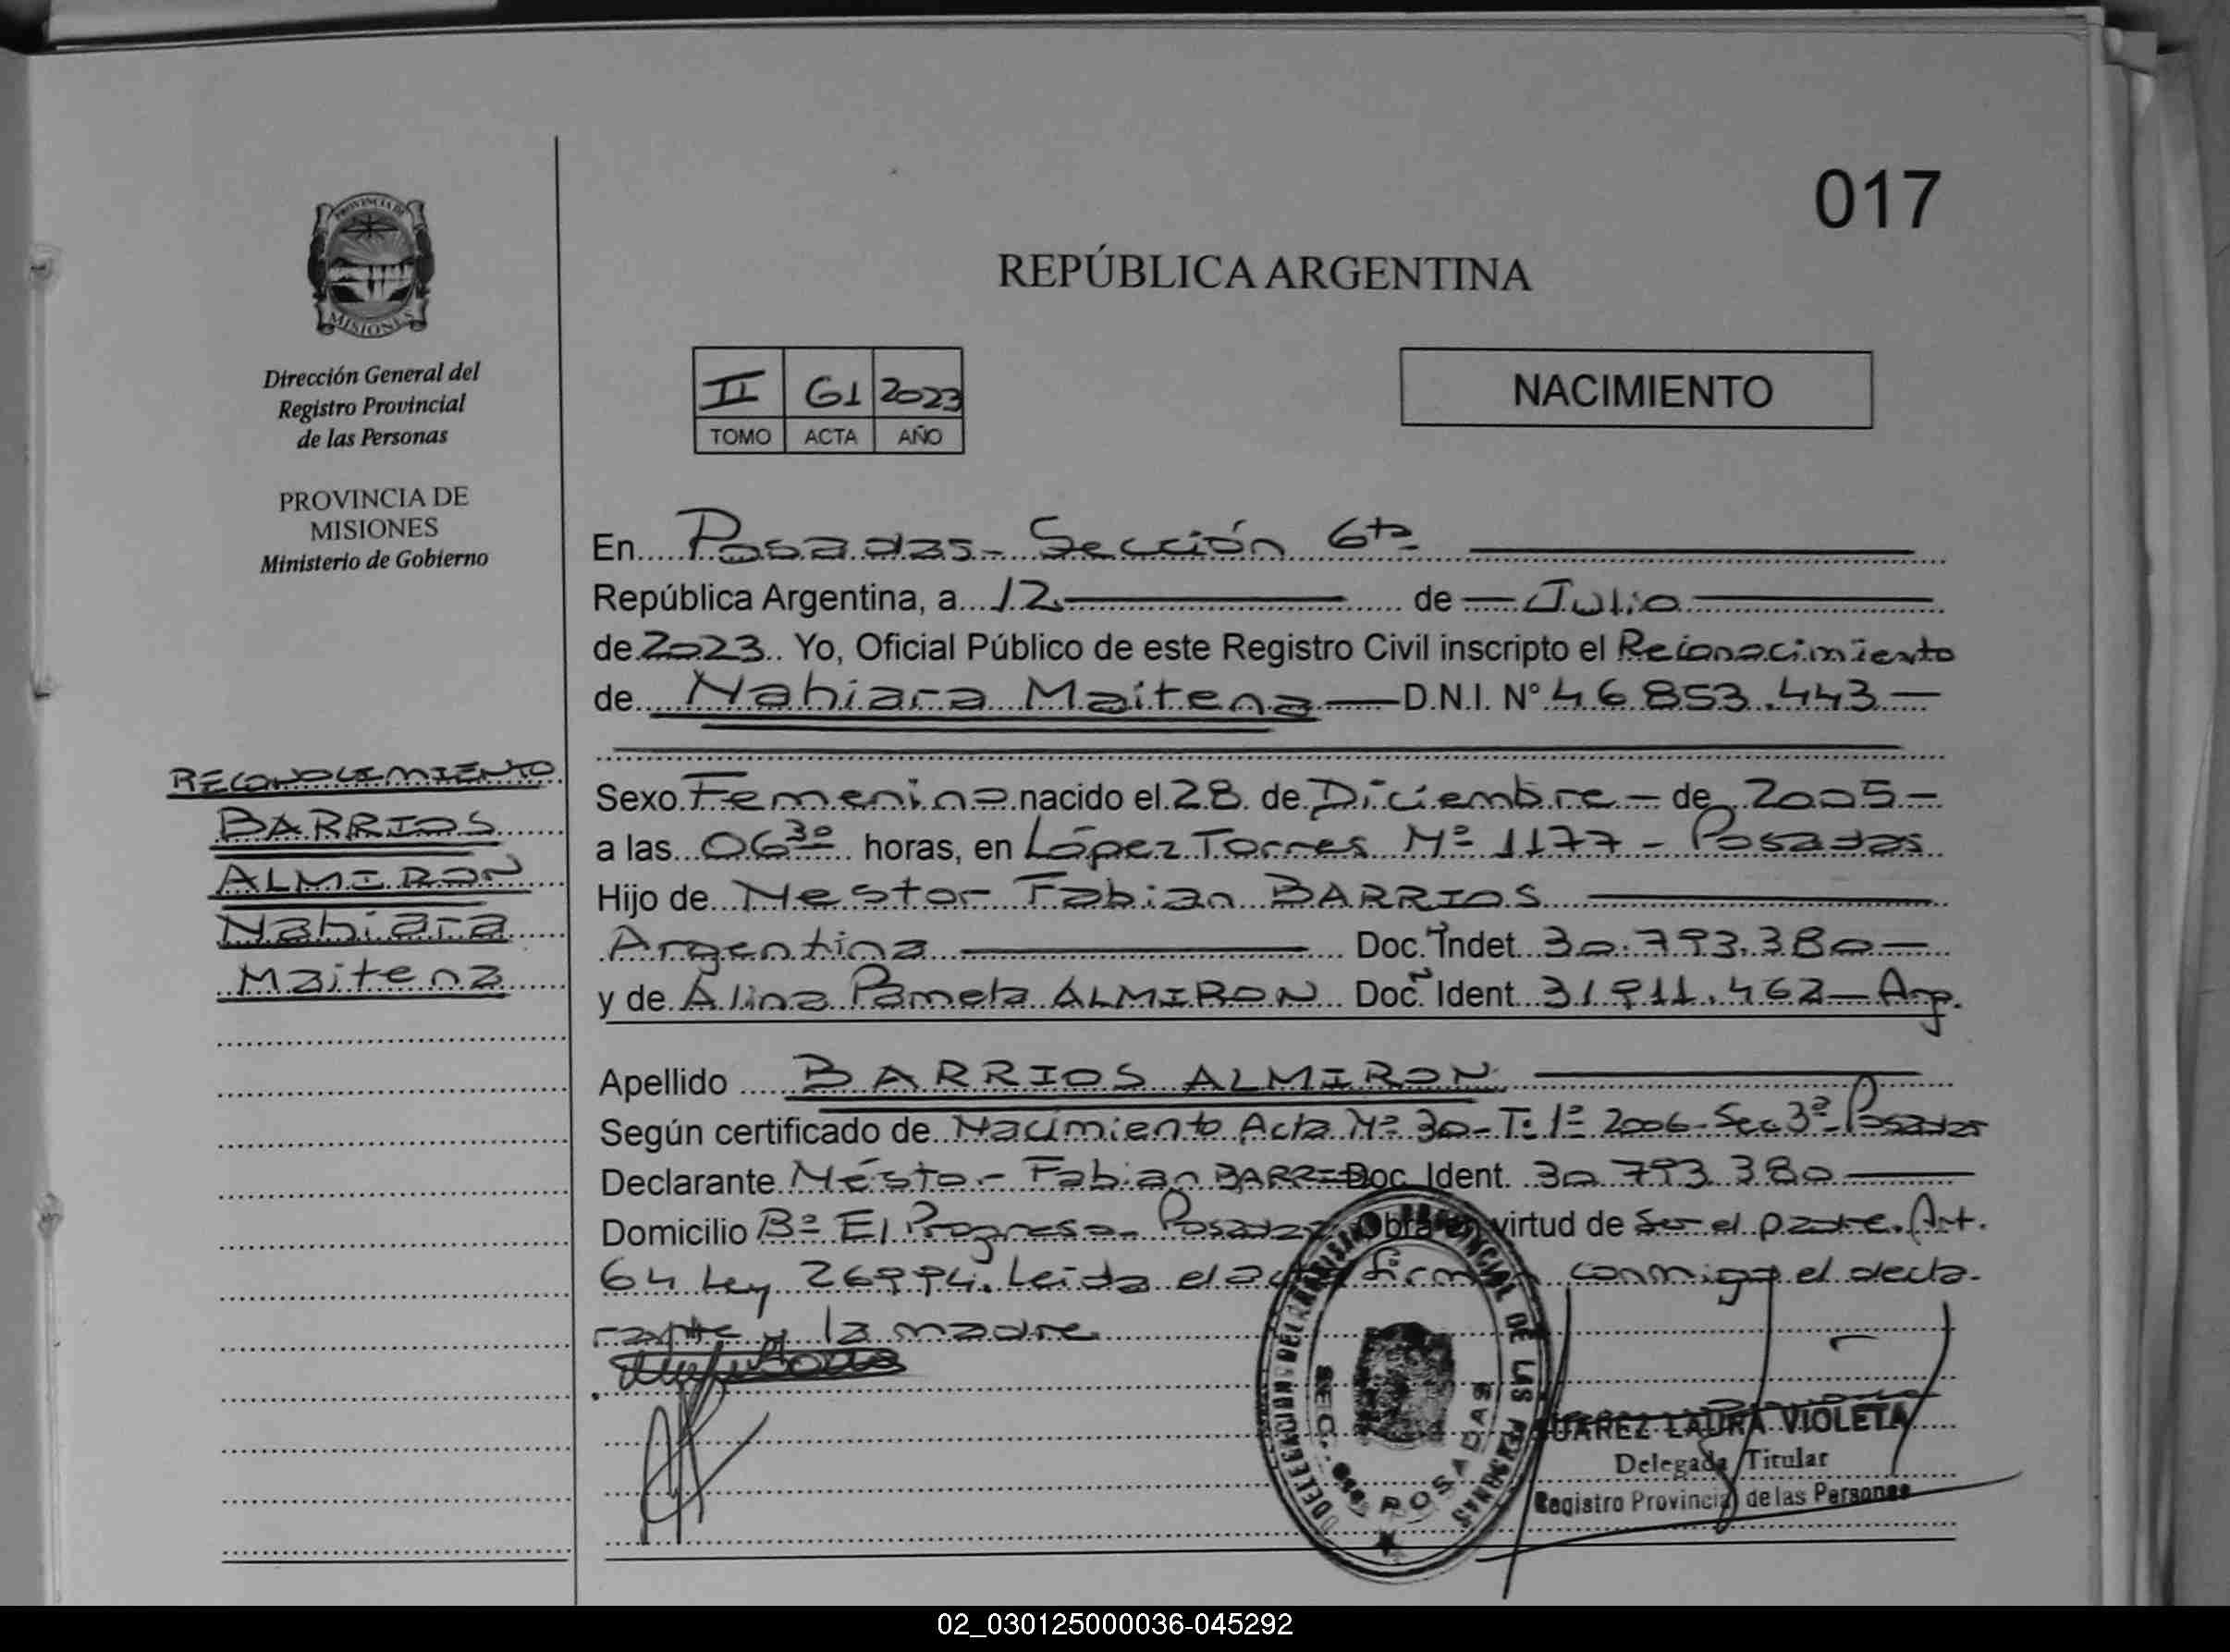 017
REPÚBLICA ARGENTINA
PROVINCIA DE
MISIONES
Dirección General del
Registro Provincial
de las Personas
PROVINCIA DE
MISIONES
Ministerio de Gobierno
II 61 2023
TOMO ACTA AÑO
NACIMIENTO
En Posadas - Sección 6ta
República Argentina, a 12 de Julio
de 2023 Yo, Oficial Público de este Registro Civil inscripto el Reconocimiento
de Nahiara Maitena D.N.I. Nº 46.853.443
Sexo Femenino nacido el 28 de Diciembre de 2005
a las 06 30 horas, en López Torres Nº 1177 - Posadas
Hijo de Nestor Fabian BARRIOS
Argentina Doc. Indet. 30.793.380
y de Alina Pamela ALMIRON Doc. Ident. 31.911.462 - Arg.
Apellido BARRIOS ALMIRON
Según certificado de Nacimiento Acta Nº 30 - T: 1º 2006 - Sec 3ª - Posadas
Declarante Néstor Fabian BARRIOS Doc. Ident. 30.793.380
Domicilio Bº El Progreso - Posadas Obra en virtud de Ser el padre. Art.
64 Ley 26994. Leida el acta firman conmigo el decla-
rante y la madre
RECONOCIMIENTO
BARRIOS
ALMIRON
Nahiara
Maitena
DE LAS PERSONAS
SEC. POSADAS
SUAREZ LAURA VIOLETA
Delegada Titular
Registro Provincial de las Personas
02_030125000036-045292